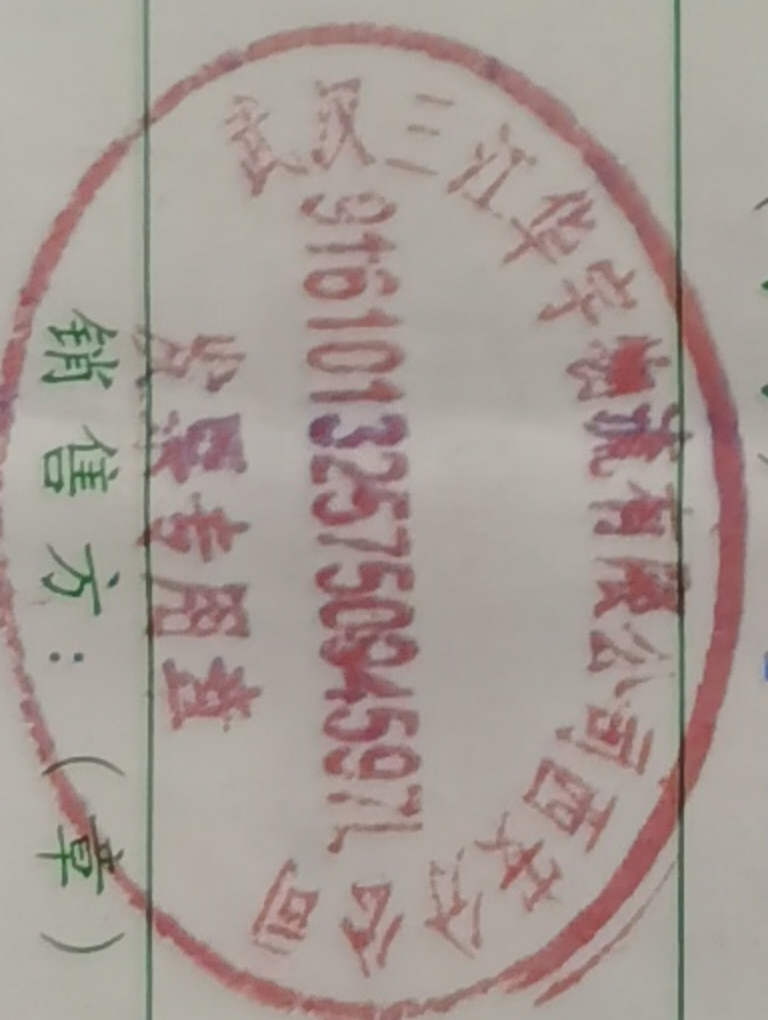 武汉三江华宇物流有限公司西安分公司
91610132575094597L
发票专用章
销售方：（章）